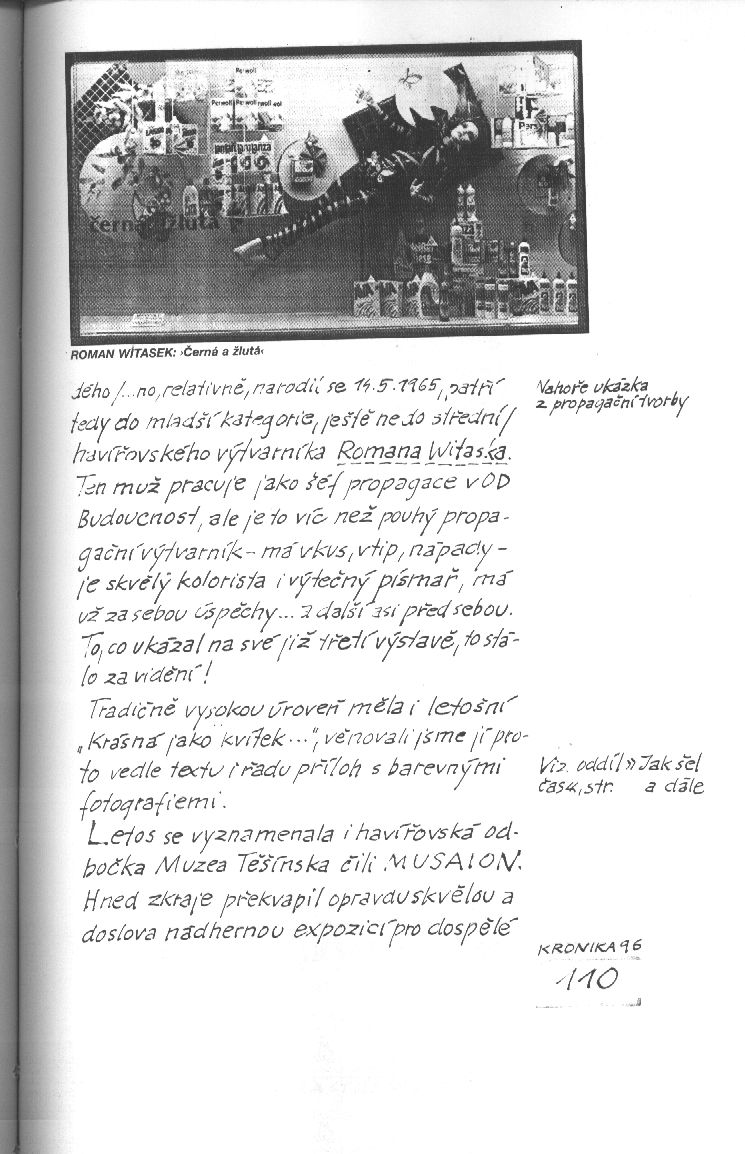 Perwoll
Perwoll Perwoll
černá žlutá
ROMAN WÍTASEK: ›Černá a žlutá‹
dého /...no, relativně, narodil se 14.5.1965, patří
tedy do mladší kategorie, ještě ne do střední /
havířovského výtvarníka Romana Witaska.
Ten muž pracuje jako šéf propagace v OD
Budoucnost, ale je to víc než pouhý propa-
gační výtvarník – má vkus, vtip, nápady –
je skvělý kolorista i výtečný písmař, má
už za sebou úspěchy... a další asi před sebou.
To, co ukázal na své již třetí výstavě, to stá-
lo za vidění!
Tradičně vysokou úroveň měla i letošní
„Krásná jako kvítek...", věnovali jsme jí pro-
to vedle textu i řadu příloh s barevnými
fotografiemi.
Letos se vyznamenala i havířovská od-
bočka Muzea Těšínska čili MUSAION.
Hned zkraje překvapil opravdu skvělou a
doslova nádhernou expozicí pro dospělé
Nahoře ukázka
z propagační tvorby
Viz. oddíl » Jak šel
čas«, str. a dále
KRONIKA 96
110